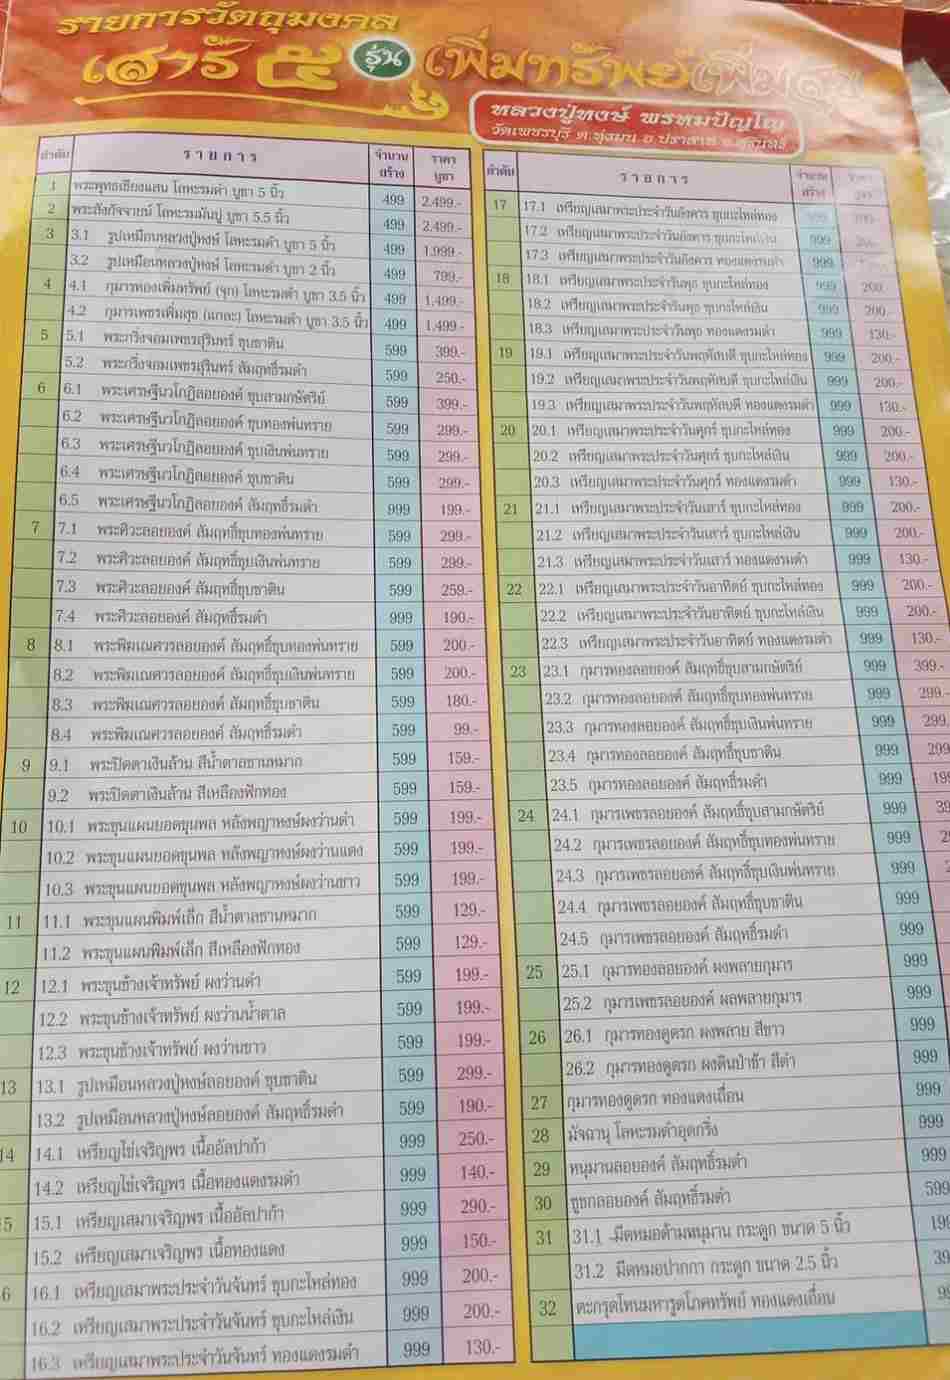 รายการวัตถุมงคล
เสาร์ ๕ รุ่น เพิ่มทรัพย์เพิ่มสุข
หลวงปู่หงษ์ พรหมปัญโญ
วัดเพชรบุรี ต.ทุ่งมน อ.ปราสาท จ.สุรินทร์
ลำดับ รายการ จำนวนสร้าง ราคาบูชา
1 พระพุทธเชียงแสน โลหะรมดำ บูชา 5 นิ้ว 499 2,499.-
2 พระสังกัจจายน์ โลหะรมมันปู บูชา 5.5 นิ้ว 499 2,499.-
3 3.1 รูปเหมือนหลวงปู่หงษ์ โลหะรมดำ บูชา 5 นิ้ว 499 1,999.-
3.2 รูปเหมือนหลวงปู่หงษ์ โลหะรมดำ บูชา 2 นิ้ว 499 799.-
4 4.1 กุมารทองเพิ่มทรัพย์ (จุก) โลหะรมดำ บูชา 3.5 นิ้ว 499 1,499.-
4.2 กุมารเพชรเพิ่มสุข (แกละ) โลหะรมดำ บูชา 3.5 นิ้ว 499 1,499.-
5 5.1 พระกริ่งจอมเพชรสุรินทร์ ชุบชาติน 599 399.-
5.2 พระกริ่งจอมเพชรสุรินทร์ สัมฤทธิ์รมดำ 599 250.-
6 6.1 พระเศรษฐีนวโกฏิลอยองค์ ชุบสามกษัตริย์ 599 399.-
6.2 พระเศรษฐีนวโกฏิลอยองค์ ชุบทองพ่นทราย 599 299.-
6.3 พระเศรษฐีนวโกฏิลอยองค์ ชุบเงินพ่นทราย 599 299.-
6.4 พระเศรษฐีนวโกฏิลอยองค์ ชุบชาติน 599 299.-
6.5 พระเศรษฐีนวโกฏิลอยองค์ สัมฤทธิ์รมดำ 999 199.-
7 7.1 พระศิวะลอยองค์ สัมฤทธิ์ชุบทองพ่นทราย 599 299.-
7.2 พระศิวะลอยองค์ สัมฤทธิ์ชุบเงินพ่นทราย 599 299.-
7.3 พระศิวะลอยองค์ สัมฤทธิ์ชุบชาติน 599 259.-
7.4 พระศิวะลอยองค์ สัมฤทธิ์รมดำ 999 190.-
8 8.1 พระพิฆเณศวรลอยองค์ สัมฤทธิ์ชุบทองพ่นทราย 599 200.-
8.2 พระพิฆเณศวรลอยองค์ สัมฤทธิ์ชุบเงินพ่นทราย 599 200.-
8.3 พระพิฆเณศวรลอยองค์ สัมฤทธิ์ชุบชาติน 599 180.-
8.4 พระพิฆเณศวรลอยองค์ สัมฤทธิ์รมดำ 599 99.-
9 9.1 พระปิดตาเงินล้าน สีน้ำตาลชานหมาก 599 159.-
9.2 พระปิดตาเงินล้าน สีเหลืองฟักทอง 599 159.-
10 10.1 พระขุนแผนยอดขุนพล หลังพญาหงษ์ผงว่านดำ 599 199.-
10.2 พระขุนแผนยอดขุนพล หลังพญาหงษ์ผงว่านแดง 599 199.-
10.3 พระขุนแผนยอดขุนพล หลังพญาหงษ์ผงว่านขาว 599 199.-
11 11.1 พระขุนแผนพิมพ์เล็ก สีน้ำตาลชานหมาก 599 129.-
11.2 พระขุนแผนพิมพ์เล็ก สีเหลืองฟักทอง 599 129.-
12 12.1 พระขุนช้างเจ้าทรัพย์ ผงว่านดำ 599 199.-
12.2 พระขุนช้างเจ้าทรัพย์ ผงว่านน้ำตาล 599 199.-
12.3 พระขุนช้างเจ้าทรัพย์ ผงว่านขาว 599 199.-
13 13.1 รูปเหมือนหลวงปู่หงษ์ลอยองค์ ชุบชาติน 599 299.-
13.2 รูปเหมือนหลวงปู่หงษ์ลอยองค์ สัมฤทธิ์รมดำ 599 190.-
14 14.1 เหรียญไข่เจริญพร เนื้ออัลปาก้า 999 250.-
14.2 เหรียญไข่เจริญพร เนื้อทองแดงรมดำ 999 140.-
15 15.1 เหรียญเสมาเจริญพร เนื้ออัลปาก้า 999 290.-
15.2 เหรียญเสมาเจริญพร เนื้อทองแดง 999 150.-
6 16.1 เหรียญเสมาพระประจำวันจันทร์ ชุบกะไหล่ทอง 999 200.-
16.2 เหรียญเสมาพระประจำวันจันทร์ ชุบกะไหล่เงิน 999 200.-
16.3 เหรียญเสมาพระประจำวันจันทร์ ทองแดงรมดำ 999 130.-
ลำดับ รายการ จำนวนสร้าง ราคาบูชา
17 17.1 เหรียญเสมาพระประจำวันอังคาร ชุบกะไหล่ทอง 999 200.-
17.2 เหรียญเสมาพระประจำวันอังคาร ชุบกะไหล่เงิน 999 200.-
17.3 เหรียญเสมาพระประจำวันอังคาร ทองแดงรมดำ 999
18 18.1 เหรียญเสมาพระประจำวันพุธ ชุบกะไหล่ทอง 999 200.
18.2 เหรียญเสมาพระประจำวันพุธ ชุบกะไหล่เงิน 999 200.-
18.3 เหรียญเสมาพระประจำวันพุธ ทองแดงรมดำ 999 130.-
19 19.1 เหรียญเสมาพระประจำวันพฤหัสบดี ชุบกะไหล่ทอง 999 200.-
19.2 เหรียญเสมาพระประจำวันพฤหัสบดี ชุบกะไหล่เงิน 999 200.-
19.3 เหรียญเสมาพระประจำวันพฤหัสบดี ทองแดงรมดำ 999 130.-
20 20.1 เหรียญเสมาพระประจำวันศุกร์ ชุบกะไหล่ทอง 999 200.-
20.2 เหรียญเสมาพระประจำวันศุกร์ ชุบกะไหล่เงิน 999 200.-
20.3 เหรียญเสมาพระประจำวันศุกร์ ทองแดงรมดำ 999 130.-
21 21.1 เหรียญเสมาพระประจำวันเสาร์ ชุบกะไหล่ทอง 999 200.-
21.2 เหรียญเสมาพระประจำวันเสาร์ ชุบกะไหล่เงิน 999 200.-
21.3 เหรียญเสมาพระประจำวันเสาร์ ทองแดงรมดำ 999 130.-
22 22.1 เหรียญเสมาพระประจำวันอาทิตย์ ชุบกะไหล่ทอง 999 200.-
22.2 เหรียญเสมาพระประจำวันอาทิตย์ ชุบกะไหล่เงิน 999 200.-
22.3 เหรียญเสมาพระประจำวันอาทิตย์ ทองแดงรมดำ 999 130.-
23 23.1 กุมารทองลอยองค์ สัมฤทธิ์ชุบสามกษัตริย์ 999 399.-
23.2 กุมารทองลอยองค์ สัมฤทธิ์ชุบทองพ่นทราย 999 299.-
23.3 กุมารทองลอยองค์ สัมฤทธิ์ชุบเงินพ่นทราย 999 299.
23.4 กุมารทองลอยองค์ สัมฤทธิ์ชุบชาติน 999 299
23.5 กุมารทองลอยองค์ สัมฤทธิ์รมดำ 999 199
24 24.1 กุมารเพชรลอยองค์ สัมฤทธิ์ชุบสามกษัตริย์ 999 39
24.2 กุมารเพชรลอยองค์ สัมฤทธิ์ชุบทองพ่นทราย 999 29
24.3 กุมารเพชรลอยองค์ สัมฤทธิ์ชุบเงินพ่นทราย 999 2
24.4 กุมารเพชรลอยองค์ สัมฤทธิ์ชุบชาติน 999
24.5 กุมารเพชรลอยองค์ สัมฤทธิ์รมดำ 999
25 25.1 กุมารทองลอยองค์ ผงพลายกุมาร 999
25.2 กุมารเพชรลอยองค์ ผลพลายกุมาร 999
26 26.1 กุมารทองดูดรก ผงพลาย สีขาว 999
26.2 กุมารทองดูดรก ผงดินป่าช้า สีดำ 999
27 กุมารทองดูดรก ทองแดงเถื่อน 999
28 มัจฉานุ โลหะรมดำอุดกริ่ง 999
29 หนุมานลอยองค์ สัมฤทธิ์รมดำ 999
30 ชูชกลอยองค์ สัมฤทธิ์รมดำ 599
31 31.1 มีดหมอด้ามหนุมาน กระดูก ขนาด 5 นิ้ว 199
31.2 มีดหมอปากกา กระดูก ขนาด 2.5 นิ้ว 39
32 ตะกรุดโทนมหารูดโภคทรัพย์ ทองแดงเถื่อน 99